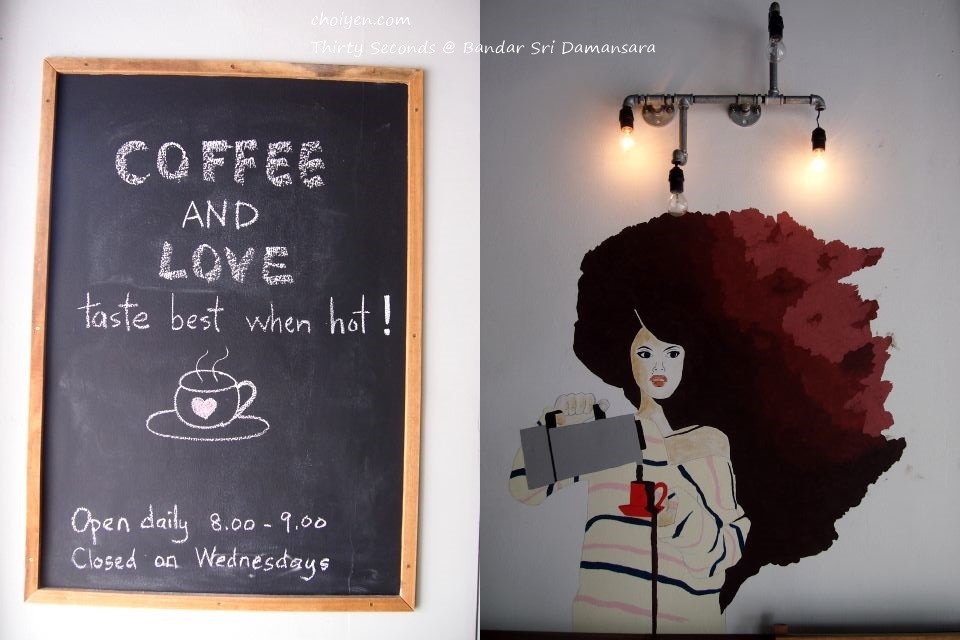 choiyen.com
Thirty Seconds @ Bandar Sri Damansara
COFFEE
AND
LOVE
taste best when hot!
Open daily 8.00 - 9.00
Closed on Wednesdays